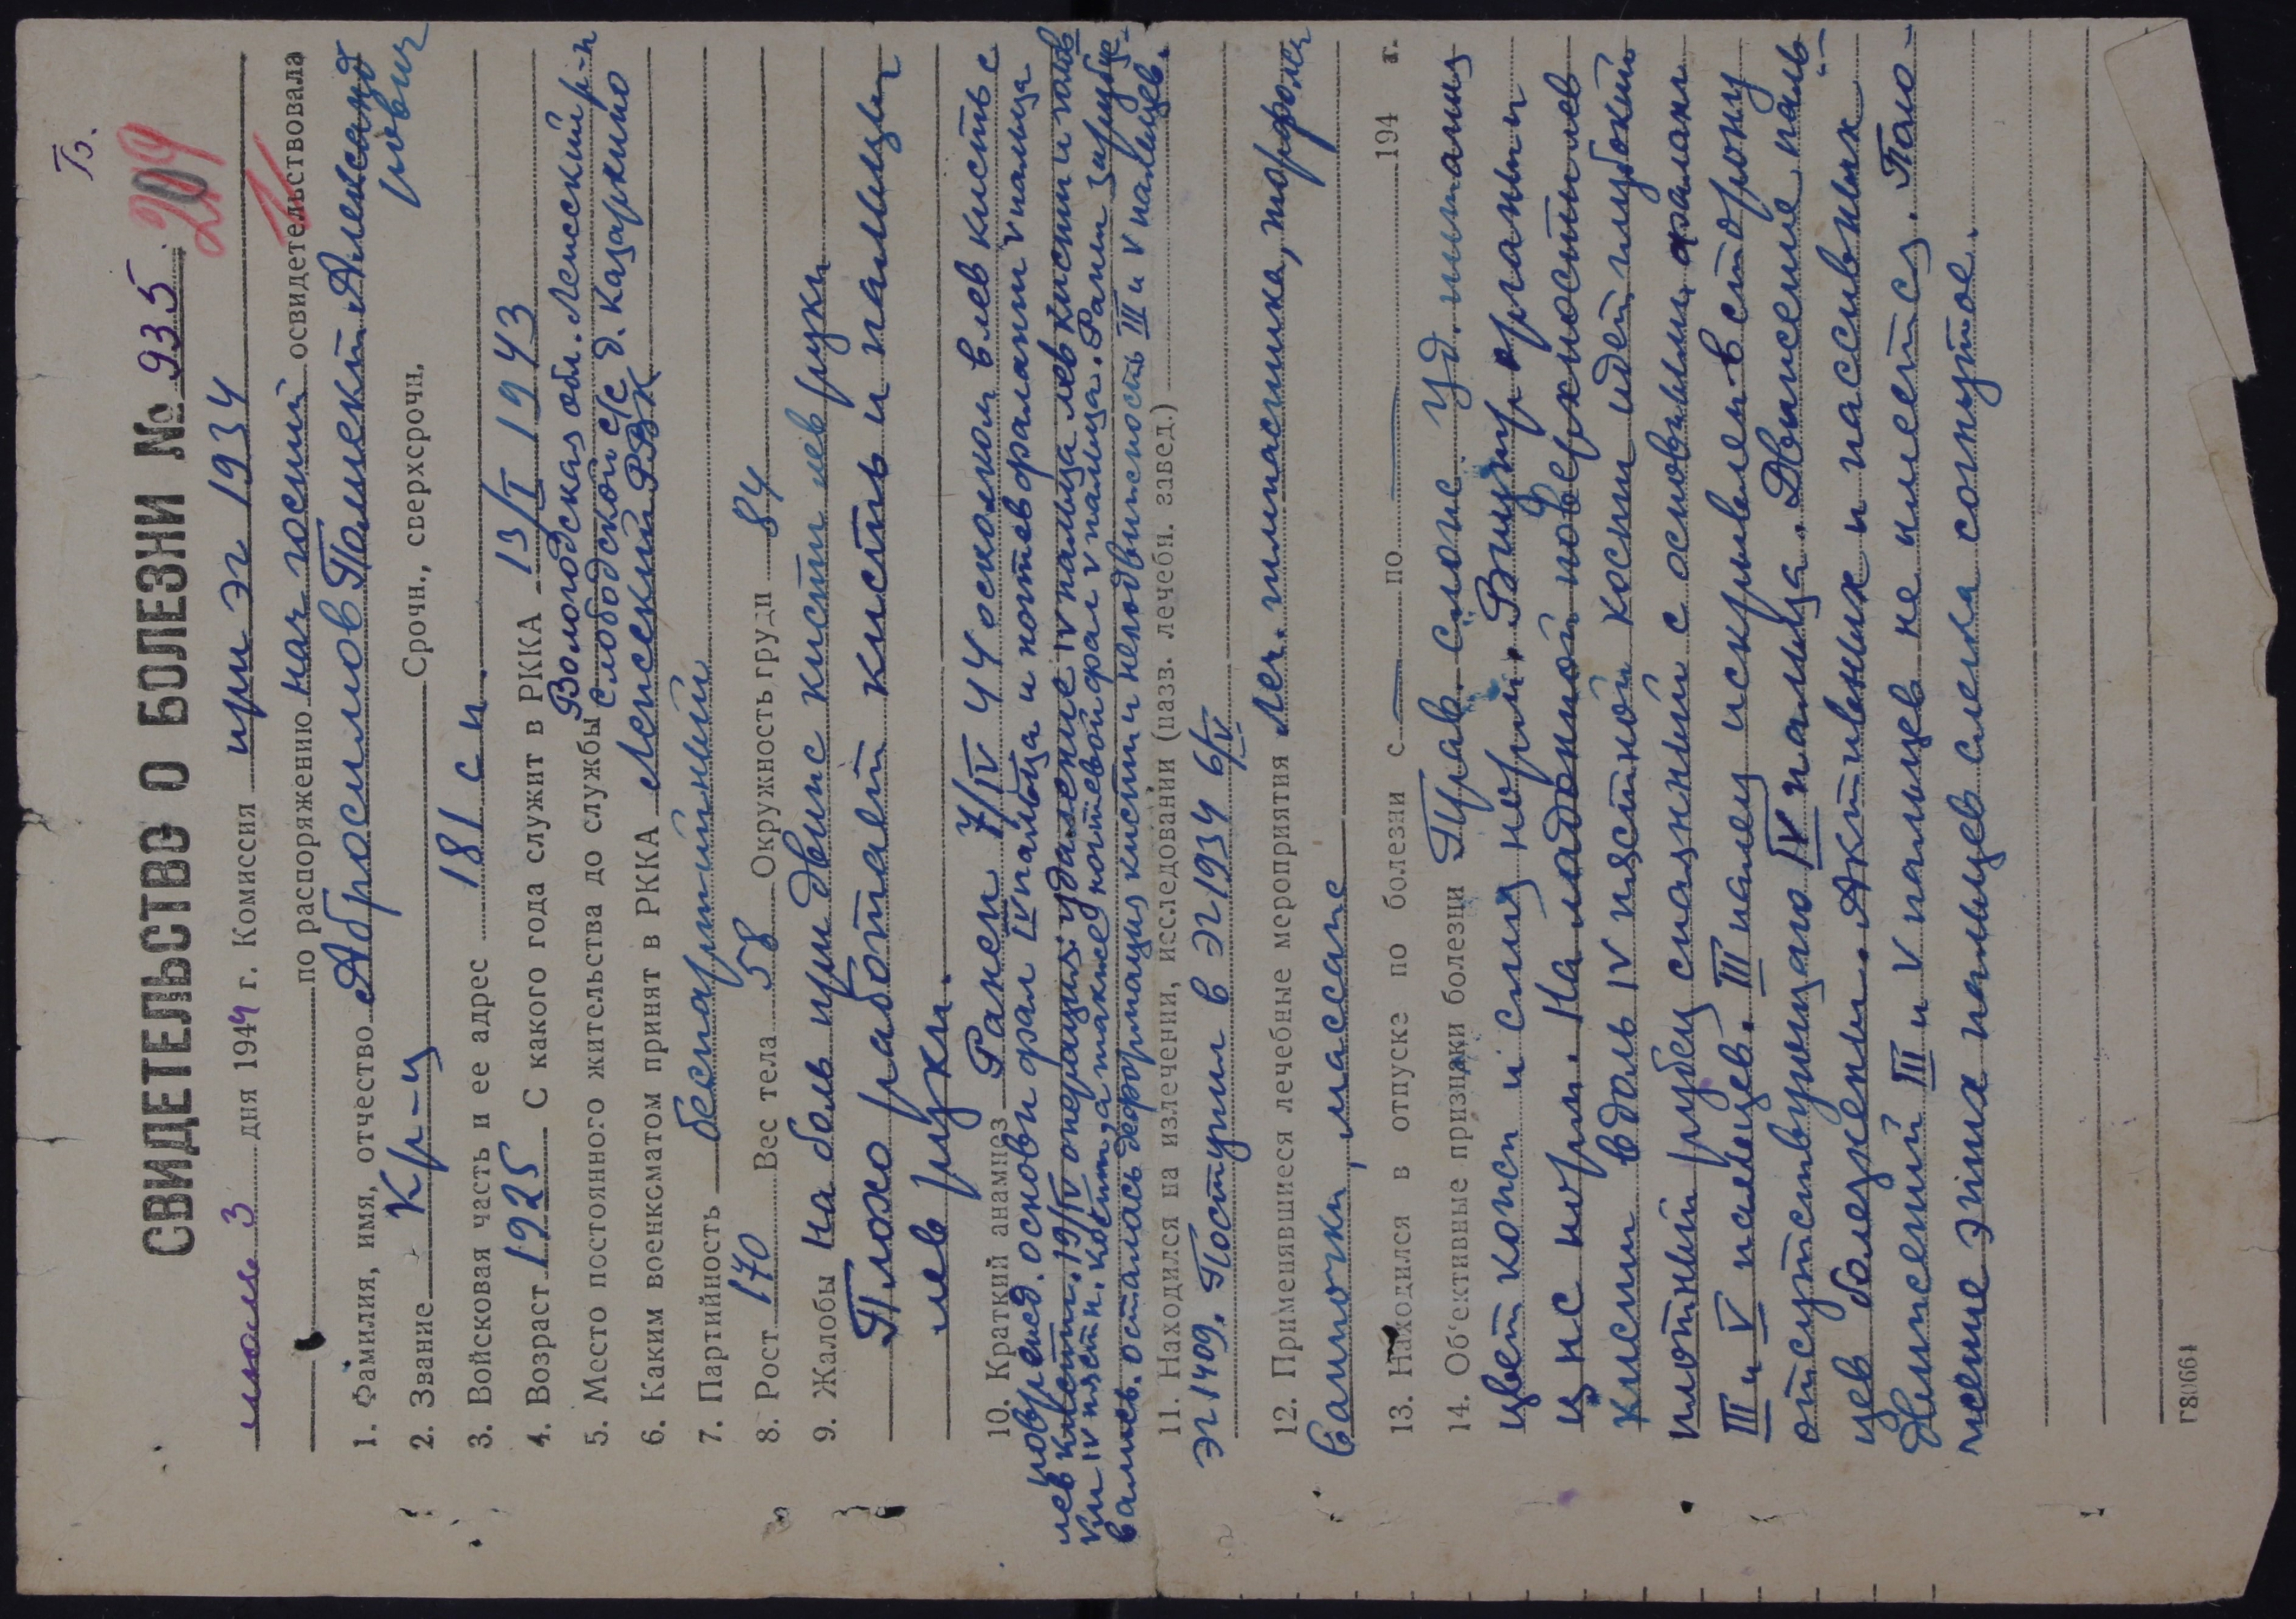 Б.
СВИДЕТЕЛЬСТВО О БОЛЕЗНИ № 935
204
июль 3 дня 1944 г. Комиссия при эг 1934
по распоряжению нач госпит освидетельствовала
1. Фамилия, имя, отчество Абросимов Полиект Александ
рович
2. Звание Кр-ц Срочн., сверхсрочн.
3. Войсковая часть и ее адрес 181 с п.
4. Возраст 1925 С какого года служит в РККА 13/I 1943
5. Место постоянного жительства до службы Вологодская обл. Ленский р-н
Слободской с/с д. Казаркино
6. Каким военкоматом принят в РККА Ленский РВК
7. Партийность беспартийный
8. Рост 170 Вес тела 58 Окружность груди 84
9. Жалобы На боль при движ кисти лев руки
Плохо работает кисть и пальцы
лев руки.
10. Краткий анамнез Ранен 7/IV 44 осколком в лев кисть с
поврежд. основн фал IV пальца и ногтев фаланги V пальца
лев кисти. 19/IV операция: удаление IV пальца лев кисти и голов
ки IV пястн. кости, а также ногтевой фал V пальца. Раны зарубце-
вались. осталась деформация кисти и неподвижность III и V пальцев.
11. Находился на излечении, исследовании (назв. лечебн. завед.)
эг 1409. Поступил в эг 1934 6/V
12. Применявшиеся лечебные мероприятия Леч. гимнастика,
Ванночки, массаж
13. Находился в отпуске по болезни с — по — 194 г.
14. Об'ективные признаки болезни Прав. слож уд. питания
цвет кожи и слиз норм. Внутр органы
ц нс норм. На ладонной поверхности лев
кисти вдоль IV пястной кости идет глубокий
плотный рубец спаянный с основными фаланг
III и V пальцев. III палец искривлен в сторону
отсутствующего IV пальца. Движение паль-
цев болезнен. Активных и пассивных
движений III и V пальцев не имеется. Поло-
жение этих пальцев слегка согнутое.
Г80661